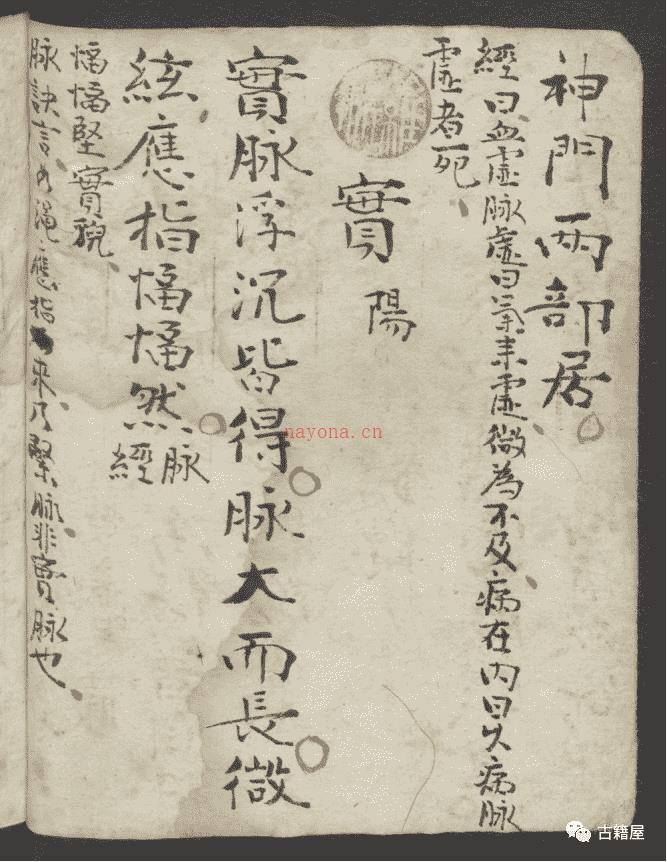 神門兩部居
經曰血虛脉虛曰氣來虛微為不及病在內曰久病脉
虛者死
實 陽
實脉浮沉皆得脉大而長微
絃應指愊愊然 脉經
愊愊堅實貌
脉訣言如繩應指來乃緊脉非實脉也
nayona.cn
古籍屋